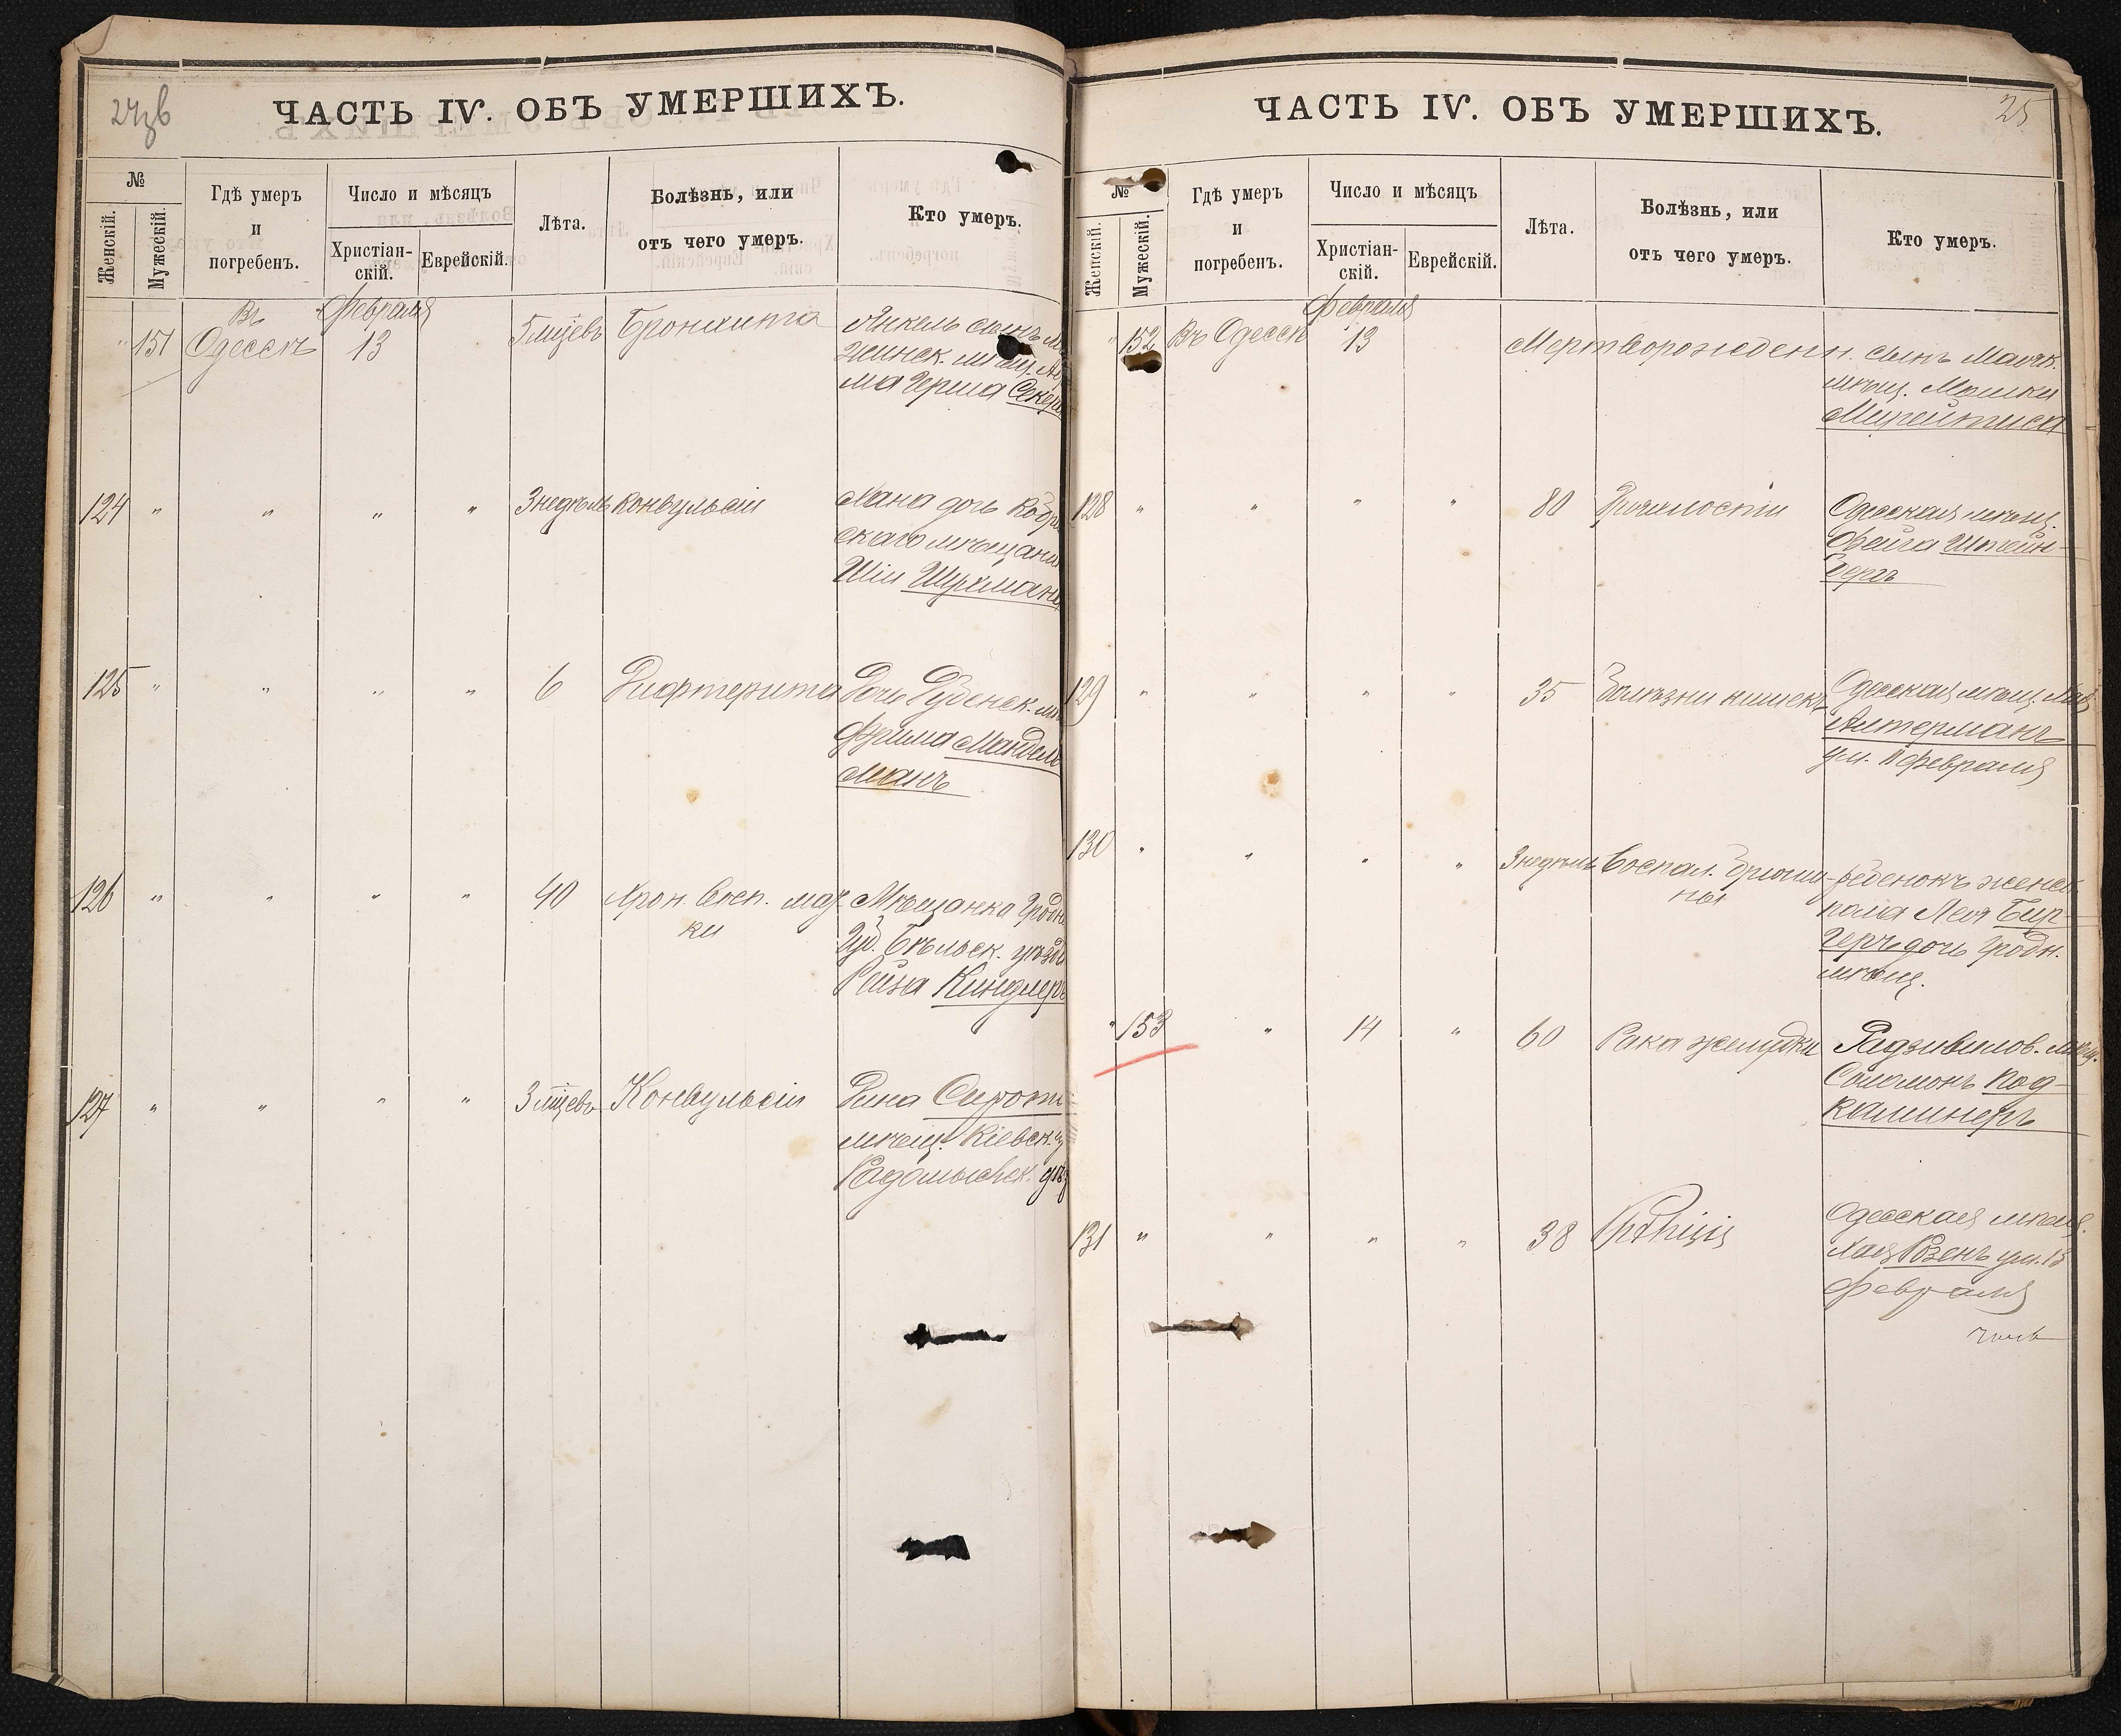 ЧАСТЬ IV. ОБЪ УМЕРШИХЪ.
№
Женскій.
Мужескій.
Гдѣ умеръ
и
погребенъ.
Число и мѣсяцъ
Христіан-
скій.
Еврейскій.
Лѣта.
Болѣзнь, или
отъ чего умеръ.
Кто умеръ.
" 151 Въ Одессѣ Февраля 13 Бронхита Янкель сынъ
жинск. мѣщ.
ма Герша
124 " " " " 3 недѣль конвульсіи Хана дочь
скаго мѣщани
Шіи
125 " " " " 6 Дифтерита Дочь Дубенск.
Фрима Мандель
манъ
126 " " " " 40 Хрон. Восп. мат- Мѣщанка Гродн
ки Губ. Бѣльск. уѣзда
Рейза Киндлеръ
127 " " " " 3 мѣсяцевъ Конвульсіи Дина
мѣщ. Кіевск.
Радомысльск. уѣз
ЧАСТЬ IV. ОБЪ УМЕРШИХЪ.
25
№
Женскій.
Мужескій.
Гдѣ умеръ
и
погребенъ.
Число и мѣсяцъ
Христіан-
скій.
Еврейскій.
Лѣта.
Болѣзнь, или
отъ чего умеръ.
Кто умеръ.
" 152 Въ Одессѣ Февраля 13 Мертворожденн. сынъ Маяк.
мѣщ. Мошки
128 " " " " 80 Одесская мѣщ.
Фейга Штейн-
бергъ
129 " " " " 35 Болѣзни кишекъ Одесская мѣщ.
Альтерманъ
ум. 11 февраля
130 " " " " 3 недѣль Воспал. брюши- ребенокъ женск.
ны пола Лея Бир-
геръ дочь Гродн.
мѣщ.
" 153 " 14 " 60 Рака желудка Радзивилов. мѣщ.
Соломонъ Под-
каминеръ
131 " " " " 38 Одесская мѣщ.
Хая Розенъ ум. 13
февраля